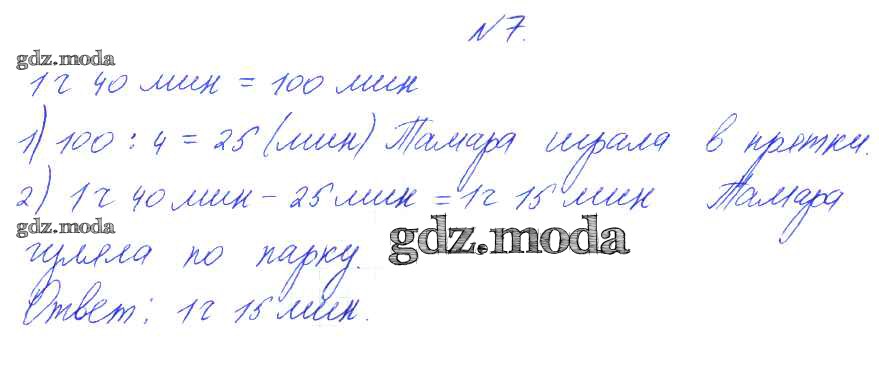 №7.
gdz.moda
1 ч 40 мин = 100 мин
1) 100 : 4 = 25 (мин) Тамара играла в прятки.
2) 1 ч 40 мин - 25 мин = 1 ч 15 мин Тамара
gdz.moda
гуляла по парку.
gdz.moda
Ответ: 1 ч 15 мин.